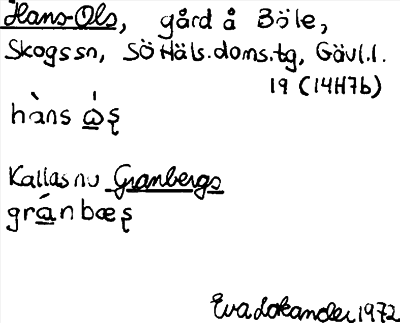 Hans-Ols, gård å Böle,
Skogs sn, SöHäls. doms. tg, Gävl. l.
19 (14H7b)
hàns ɷ́ʂ
Kallas nu Granbergs
gránbæʂ
Eva Lokander 1972